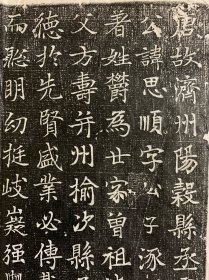 唐故濟州陽穀縣丞
公諱思順字公子涿
著姓欝為世家曾祖
父方壽并州榆次縣
德於先賢盛業必傳
而聡明幼挺岐嶷强